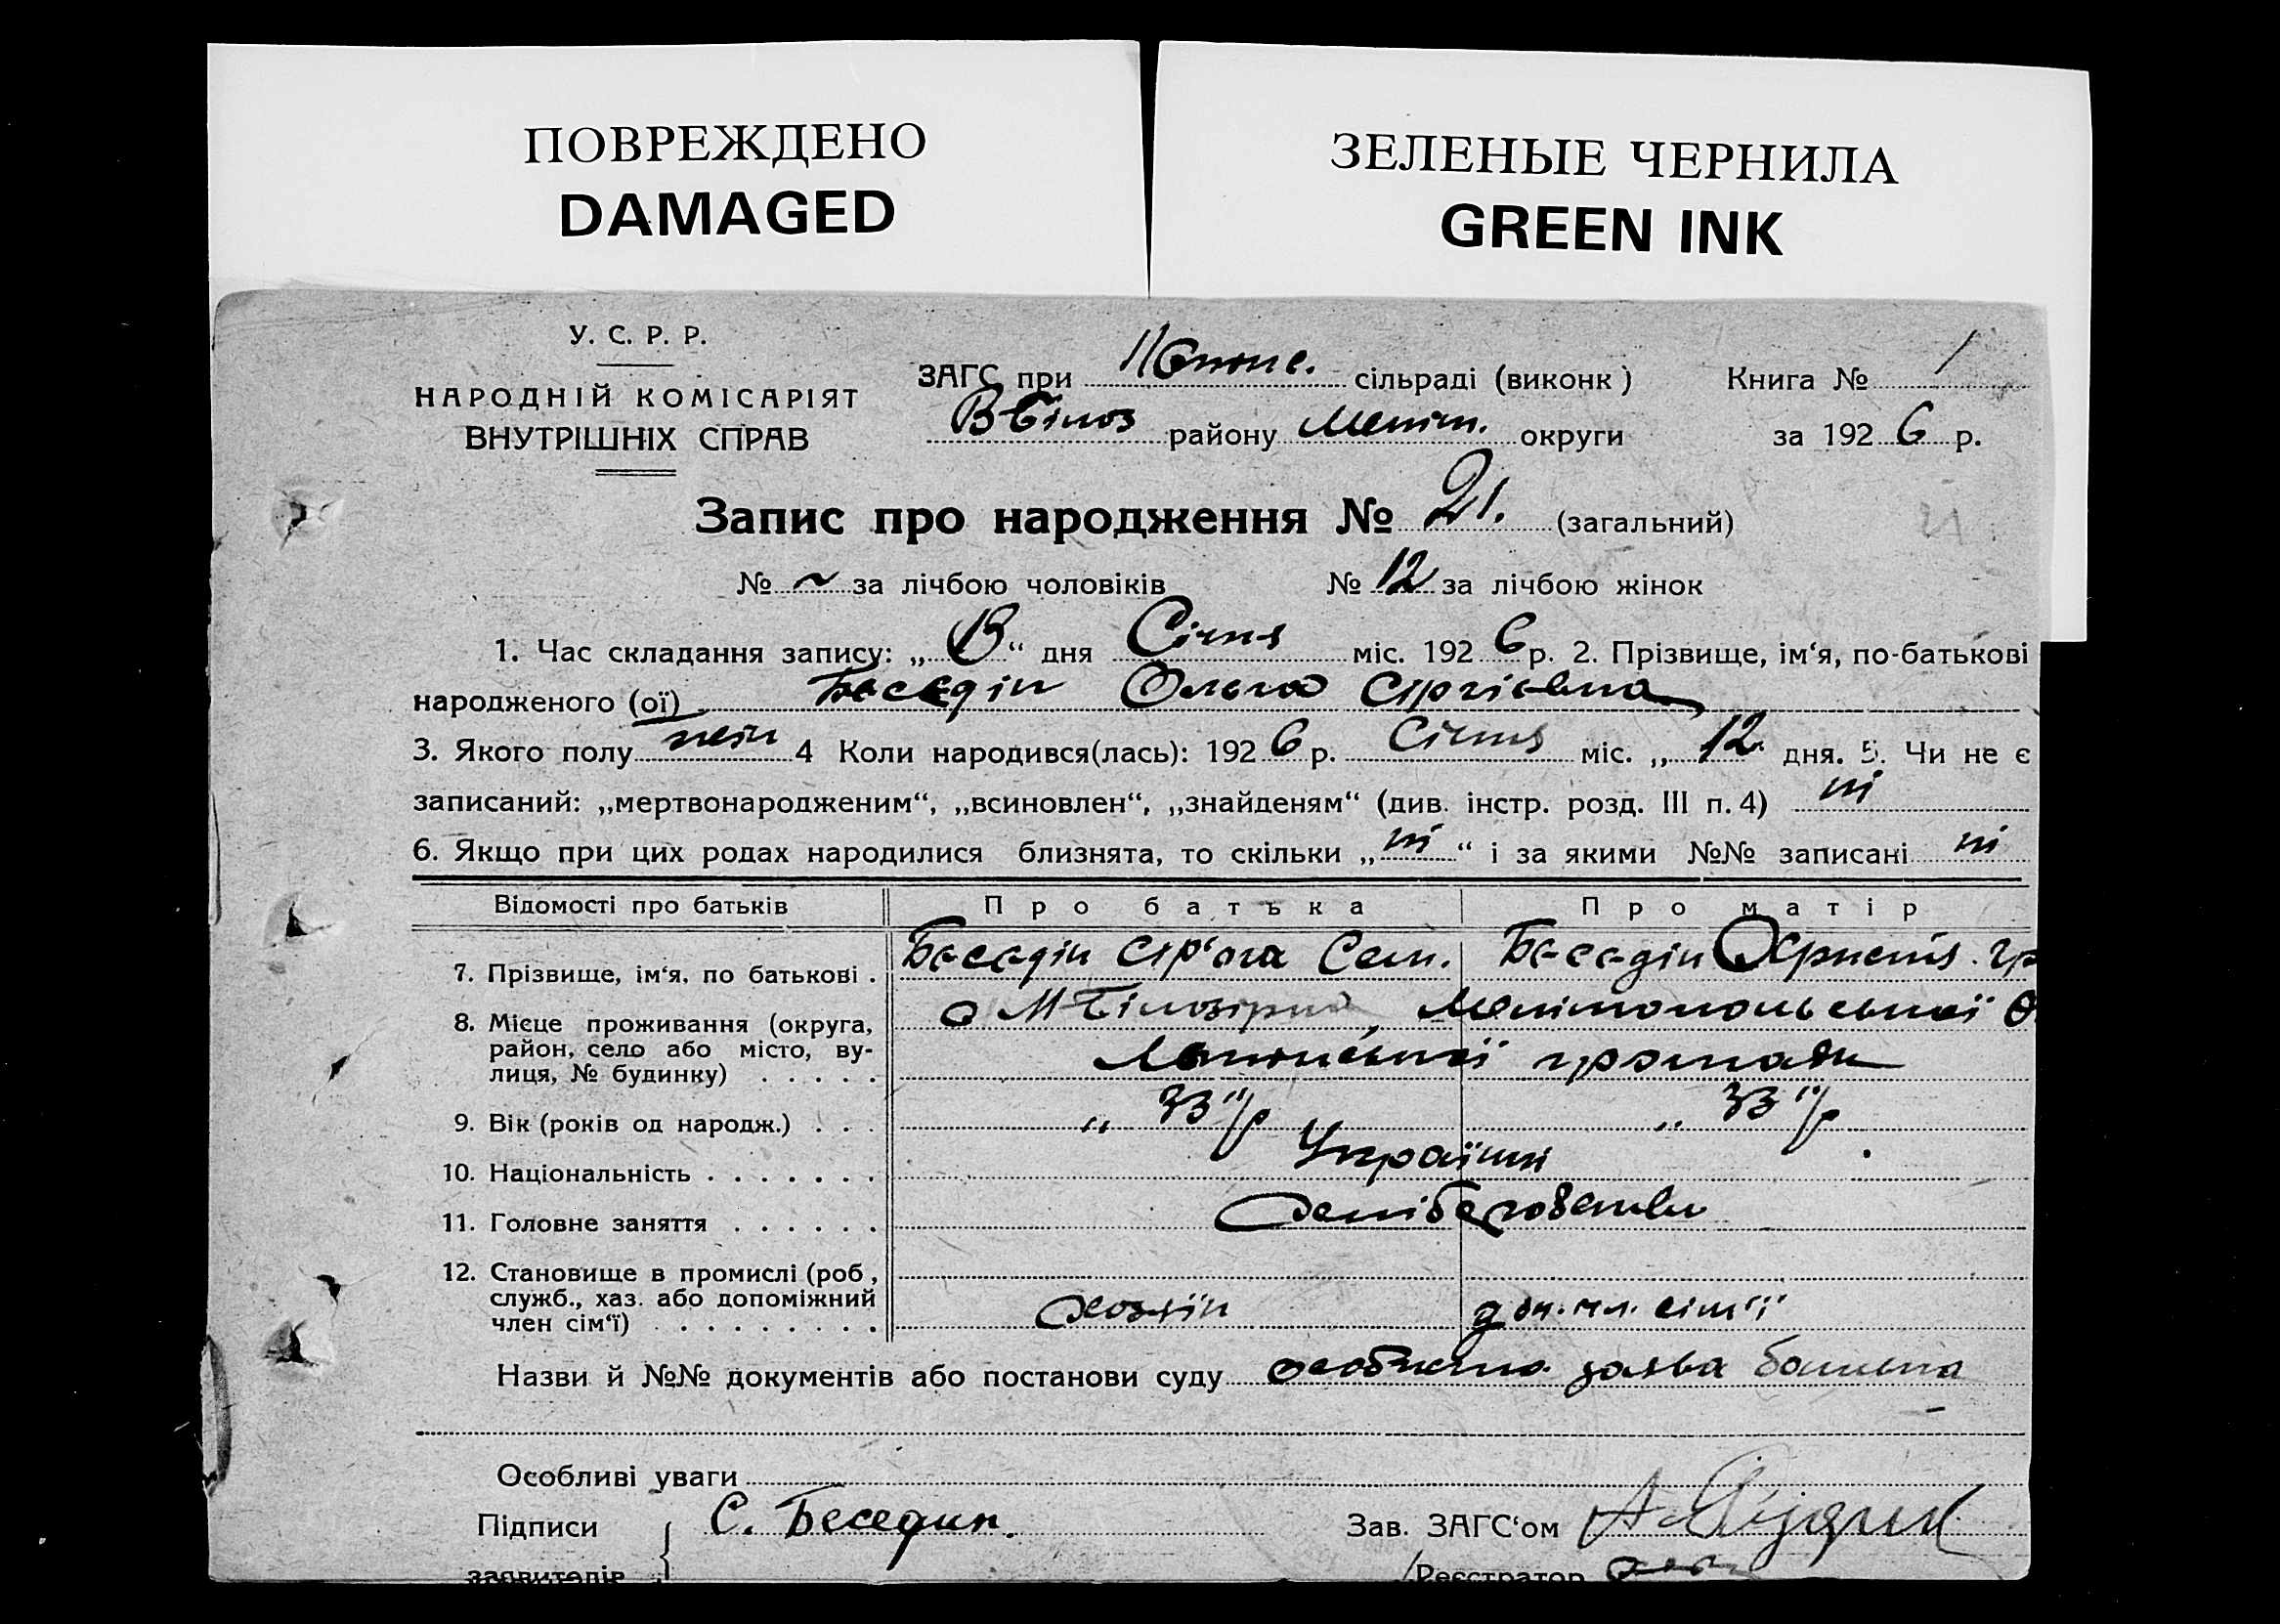 ПОВРЕЖДЕНО
DAMAGED
ЗЕЛЕНЫЕ ЧЕРНИЛА
GREEN INK
У. С. Р. Р.
НАРОДНІЙ КОМІСАРІЯТ
ВНУТРІШНІХ СПРАВ
ЗАГС при сільраді (виконк) Книга № 1
В Білоз району Меліт. округи за 1926 р.
Запис про народження № 21. (загальний)
№ ~ за лічбою чоловіків № 12 за лічбою жінок
1. Час складання запису: „13“ дня Січня міс. 1926 р. 2. Прізвище, ім‘я, по-батькові
народженого (ої) Беседін Ольга Сергієвна
3. Якого полу жін 4 Коли народився(лась): 1926 р. Січня міс. „12 дня. 5. Чи не є
записаний: „мертвонародженим“, „всиновлен“, „знайденям“ (див. інстр. розд. III п. 4) ні
6. Якщо при цих родах народилися близнята, то скільки „ні“ і за якими №№ записані ні
Відомості про батьків Про батька Про матір
7. Прізвище, ім‘я, по батькові . Беседін Сем. Беседін
8. Місце проживання (округа, М-Білозірка, Мелітопольської О
район, село або місто, ву-
лиця, № будинку) . . . . . громади
9. Вік (років од народж.) . . . „ 33 „ 33
10. Національність . . . . . . . Україн
11. Головне заняття . . . . . . хліборобство
12. Становище в промислі (роб.,
служб., хаз. або допоміжний
член сім‘ї) . . . . . . . . . хозяїн доп. чл. сім'ї
Назви й №№ документів або постанови суду особиста заява батька
Особливі уваги
Підписи С. Беседин. Зав. ЗАГС‘ом
заявителів Реєстратор